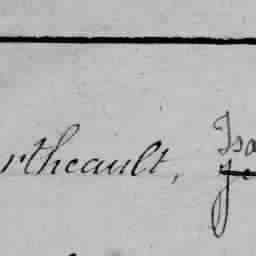 rtheault, Isa